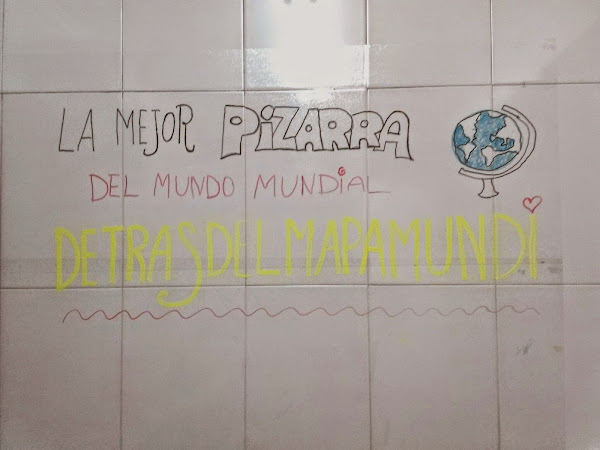 LA MEJOR PIZARRA
DEL MUNDO MUNDIAL
DETRASDELMAPAMUNDI